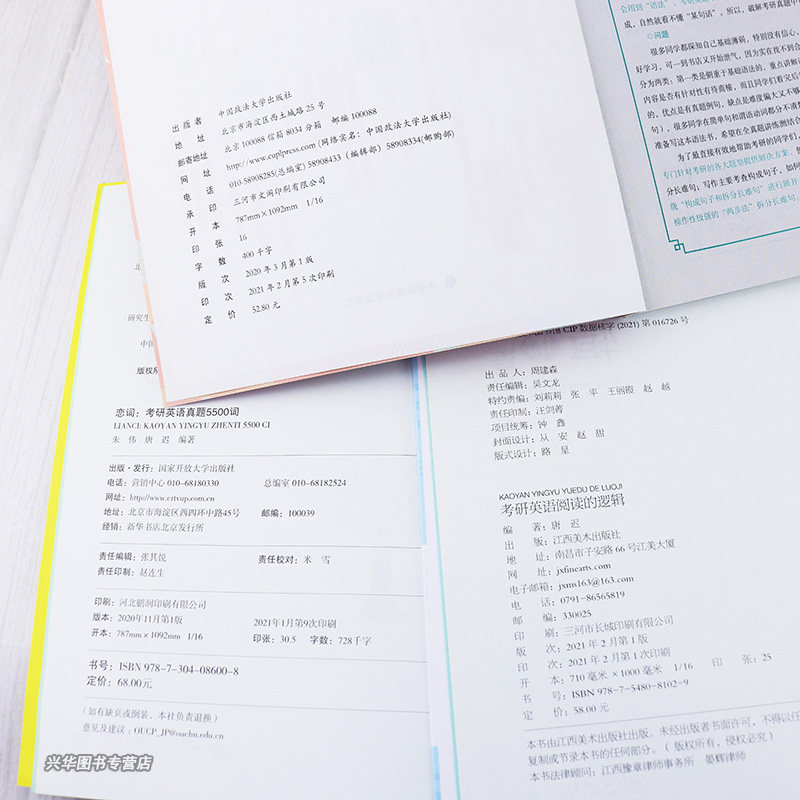 出版者 中国政法大学出版社
地址 北京市海淀区西土城路 25 号
邮寄地址 北京 100088 信箱 8034 分箱 邮编 100088
网址 http://www.cuplpress.com (网络实名：中国政法大学出版社)
电话 010-58908285(总编室) 58908433（编辑部）58908334(邮购部)
承印 三河市文阁印刷有限公司
开本 787mm×1092mm 1/16
印张 16
字数 400 千字
版次 2020 年 3 月第 1 版
印次 2021 年 2 月第 5 次印刷
定价 52.80 元
成，自然就看不懂“某句话”。所以，破解考研真题中
◎问题
很多同学都深知自己基础薄弱，特别没有信心，
好学习，可一到书店又开始泄气，因为实在找不到合
分为两类：第一类是侧重于基础语法的，重点讲解词
内容是否有针对性有待商榷，而且同学们看完后
的，优点是有真题例句，缺点是难度偏大又不够
句），很多同学在简单句和谓语动词都分不清
准备写这本语法书，希望在全真题讲练测结合
为了最直接有效地帮助考研的同学们，
专门针对考研的各大题型提供解决方案，
分长难句；写作主要考查构成句子，如何
绕“构成句子和拆分长难句”进行展开
操作性极强的“两步法”拆分长难句，
研究生
中国
版权所
恋词：考研英语真题5500词
LIANCI: KAOYAN YINGYU ZHENTI 5500 CI
朱 伟 唐 迟 编著
出版·发行：国家开放大学出版社
电话：营销中心 010-68180330 总编室 010-68182524
网址：http://www.crtvup.com.cn
地址：北京市海淀区西四环中路45号 邮编：100039
经销：新华书店北京发行所
责任编辑：张其锐 责任校对：米 雪
责任印制：赵连生
印刷：河北鹏润印刷有限公司
版本：2020年11月第1版 2021年1月第9次印刷
开本：787mm×1092mm 1/16 印张：30.5 字数：728千字
书号：ISBN 978-7-304-08600-8
定价：68.00元
（如有缺页或倒装，本社负责退换）
意见及建议：OUCP_JP@ouchn.edu.cn
CIP 数据核字 (2021) 第 016726 号
出 品 人：周建森
责任编辑：吴文龙
特约责编：刘莉莉 张 平 王丽霞 赵 越
责任印制：汪剑菁
项目统筹：钟 鑫
封面设计：从 安 赵 甜
版式设计：路 星
KAOYAN YINGYU YUEDU DE LUOJI
考研英语阅读的逻辑
编 著：唐 迟
出 版：江西美术出版社
地 址：南昌市子安路 66 号江美大厦
网 址：jxfinearts.com
电子邮箱：jxms163@163.com
电 话：0791-86565819
邮 编：330025
印 刷：三河市长城印刷有限公司
版 次：2021 年 2 月第 1 版
印 次：2021 年 2 月第 1 次印刷
开 本：710 毫米 × 1000 毫米 1/16 印 张：25
书 号：ISBN 978-7-5480-8102-9
定 价：58.00 元
本书由江西美术出版社出版。未经出版者书面许可，不得以任
复制或节录本书的任何部分。（版权所有，侵权必究）
本书法律顾问：江西豫章律师事务所 晏辉律师
兴华图书专营店